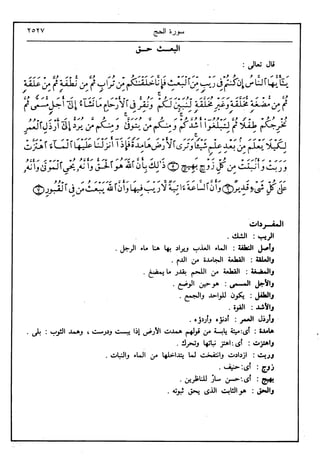 ٢٥٢٧
سورة الحج
البعث حق
قال تعالى :
يَٰٓأَيُّهَا ٱلنَّاسُ إِن كُنتُمْ فِى رَيْبٍ مِّنَ ٱلْبَعْثِ فَإِنَّا خَلَقْنَٰكُم مِّن تُرَابٍ ثُمَّ مِن نُّطْفَةٍ ثُمَّ مِنْ عَلَقَةٍ
ثُمَّ مِن مُّضْغَةٍ مُّخَلَّقَةٍ وَغَيْرِ مُخَلَّقَةٍ لِّنُبَيِّنَ لَكُمْ وَنُقِرُّ فِى ٱلْأَرْحَامِ مَا نَشَآءُ إِلَىٰٓ أَجَلٍ مُّسَمًّى ثُمَّ
نُخْرِجُكُمْ طِفْلًا ثُمَّ لِتَبْلُغُوٓا۟ أَشُدَّكُمْ وَمِنكُم مَّن يُتَوَفَّىٰ وَمِنكُم مَّن يُرَدُّ إِلَىٰٓ أَرْذَلِ ٱلْعُمُرِ
لِكَيْلَا يَعْلَمَ مِنۢ بَعْدِ عِلْمٍ شَيْـًٔا وَتَرَى ٱلْأَرْضَ هَامِدَةً فَإِذَآ أَنزَلْنَا عَلَيْهَا ٱلْمَآءَ ٱهْتَزَّتْ
وَرَبَتْ وَأَنۢبَتَتْ مِن كُلِّ زَوْجٍۭ بَهِيجٍ ۝ ذَٰلِكَ بِأَنَّ ٱللَّهَ هُوَ ٱلْحَقُّ وَأَنَّهُۥ يُحْىِ ٱلْمَوْتَىٰ وَأَنَّهُۥ
عَلَىٰ كُلِّ شَىْءٍ قَدِيرٌ ۝ وَأَنَّ ٱلسَّاعَةَ ءَاتِيَةٌ لَّا رَيْبَ فِيهَا وَأَنَّ ٱللَّهَ يَبْعَثُ مَن فِى ٱلْقُبُورِ ۝
المفردات
الريب : الشك .
وأصل النطفة : الماء العذب ويراد بها هنا ماء الرجل .
والعلقة : القطعة الجامدة من الدم .
والمضغة : القطعة من اللحم بقدر ما يمضغ .
والأجل المسمى : هو حين الوضع .
والطفل : يكون للواحد والجمع .
والأشد : القوة .
وأرذل العمر : أدنؤه وأردؤه .
هامدة : أى : ميتة يابسة من قولهم همدت الأرض إذا يبست ودرست ، وهمد الثوب : بلى .
واهتزت : أى : اهتز نباتها وتحرك .
وربت : ازدادت وانتفخت لما يتداخلها من الماء والنبات .
زوج : أى : صنف .
بهيج : أى : حسن سارّ للناظرين .
والحق : هو الثابت الذى يحق ثبوته .